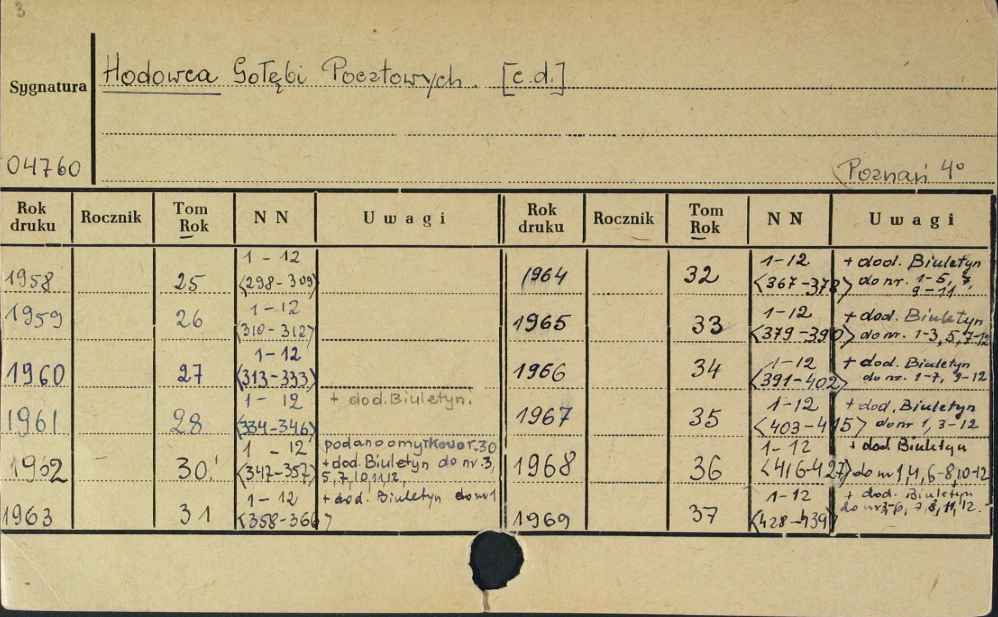 3
Sygnatura
Hodowca Gołębi Pocztowych. [c.d.]
04760
Poznań 4°
Rok druku Rocznik Tom Rok NN Uwagi Rok druku Rocznik Tom Rok NN Uwagi
1958 25 1-12 <298-309>
1959 26 1-12 <310-312>
1960 27 1-12 <313-333>
1961 28 1-12 <334-346> + dod. Biuletyn.
1962 30! 1-12 <347-357> podano omyłkowo r. 30
+ dod. Biuletyn do nr. 3,
5, 7, 10, 11, 12,
1963 31 1-12 <358-366> + dod. Biuletyn do nr 1
1964 32 1-12 <367-378> + dod. Biuletyn
do nr. 1-5, 7,
9-11.
1965 33 1-12 <379-390> + dod. Biuletyn
do nr. 1-3, 5, 7-12
1966 34 1-12 <391-402> + dod. Biuletyn
do nr. 1-7, 9-12
1967 35 1-12 <403-415> + dod. Biuletyn
do nr 1, 3-12
1968 36 1-12 <416-427> + dod Biuletyn
do nr 1, 4, 6-8, 10-12
1969 37 1-12 <428-439> + dod. Biuletyn
do nr 3-6, 7, 8, 11, 12.